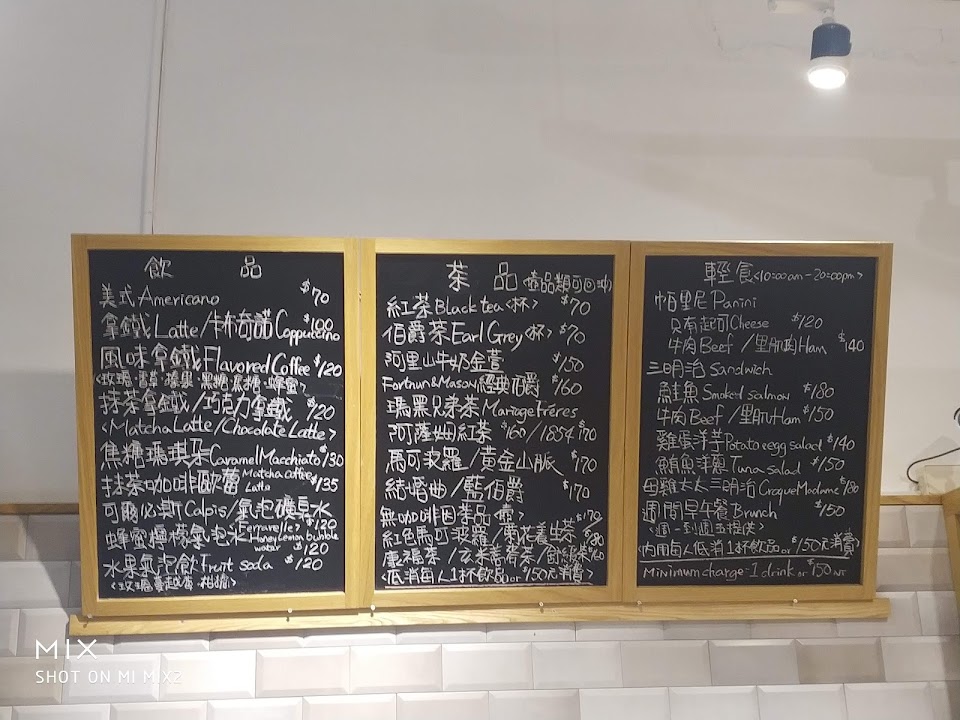 飲 品
美式 Americano $70
拿鐵 Latte/卡布奇諾 Cappuccino $100
風味拿鐵 Flavored Coffee $120
抹茶拿鐵/巧克力拿鐵 $120
<Matcha Latte/Chocolate Latte>
焦糖瑪琪朵 Caramel Macchiato $130
抹茶咖啡歐蕾 Matcha coffee Latte $135
可爾必思 Calpis/氣泡礦泉水
Ferrarelle> $120
蜂蜜檸檬氣泡水 Honey Lemon bubble water $120
水果氣泡飲 Fruit soda $120
茶 品 (壺品類可回沖)
紅茶 Black tea <杯> $70
伯爵茶 Earl Grey <杯> $70
阿里山牛奶金萱 $150
Fortnum&Mason 經典伯爵 $160
瑪黑兄弟茶 Mariage Frères
阿薩姆紅茶 $160/1854 $170
馬可波羅/黃金山脈 $170
結婚曲/藍伯爵 $170
無咖啡因茶品<壺>
紅色馬可波羅/菊花養生茶
康福茶/玄米
<低消每人1杯飲品or $150元消費>
輕食 <10:00am-20:00pm>
帕里尼 Panini
只有起司 Cheese $120
牛肉 Beef /里肌肉 Ham $140
三明治 Sandwich
鮭魚 Smoked salmon $180
牛肉 Beef/里肌 Ham $150
雞蛋洋芋 Potato egg salad $140
鮪魚洋蔥 Tuna salad $150
母雞太太三明治 Croque Madame $180
週間早午餐 Brunch $150
<週一到週五提供>
<內用每人低消1杯飲品or $150元消費>
Minimum charge=1 drink or $150 NT
MIX
SHOT ON MI MIX2